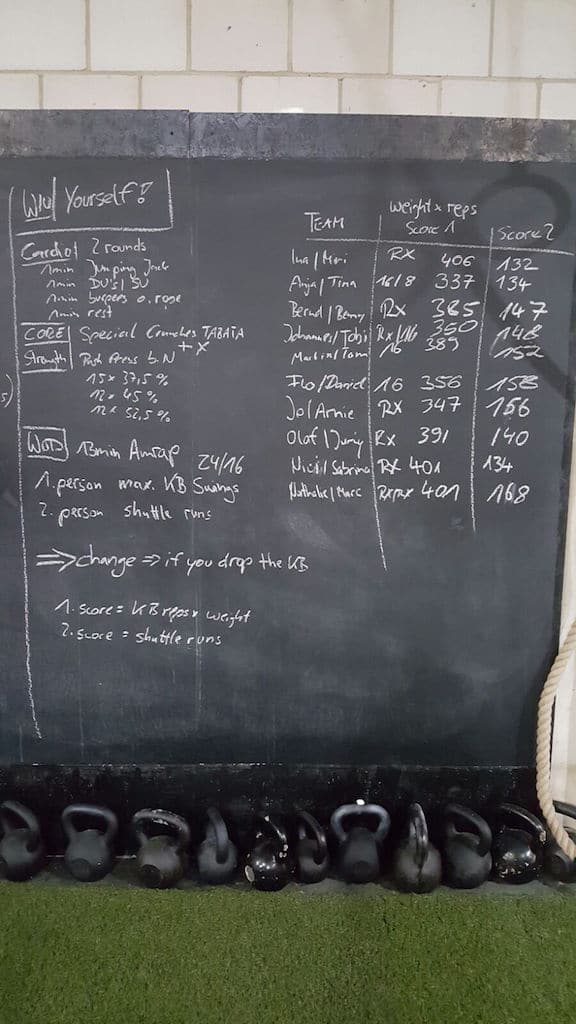 WU Yourself!
Cardio 2 rounds
1min Jumping Jack
1min DU's/SU
1min burpees o. rope
1min rest
CORE Special Crunches TABATA
+X
Strength Push Press b.N
15 x 37,5%
12 x 45%
12 x 52,5%
WOD 13min Amrap
24/16
1. person max. KB Swings
2. person shuttle runs
=> change => if you drop the KB
1. score = KB reps x weight
2. score = shuttle runs
Weight x reps
TEAM Score 1 Score 2
/Meri RX 406 132
Anja/Tina 16/8 337 134
Bernd/Benny RX 385 147
Johannes/Tobi RX/16 350 148
Martin/Tom 16 389 152
Flo/Daniel 16 356 158
Jo/Arnie RX 347 156
Olaf/ RX 391 140
Nicki/Sabrina RX 401 134
Nathalie/Marc RX/RX 401 168